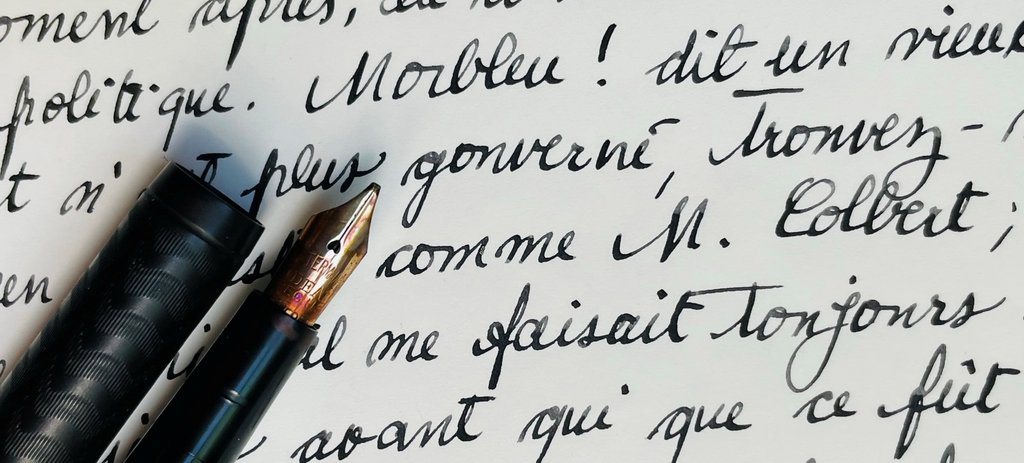 oment après,
politique. Morbleu ! dit un vieux
t n' plus gouverné, Trouvez-
en comme M. Colbert ;
il me faisait toujours
avant qui que ce fût